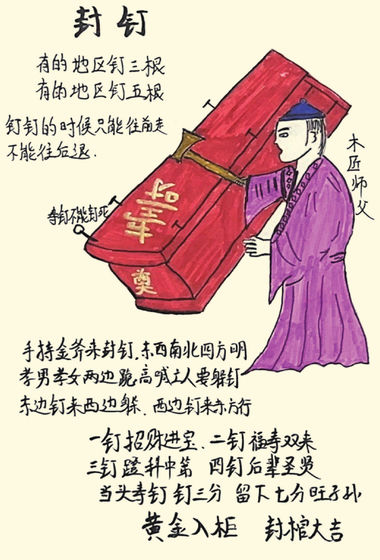 封钉
有的地区钉三根
有的地区钉五根
钉钉的时候只能往前走
不能往后退.
木匠师父
寿钉不能钉死
奠
手持金斧来封钉.东西南北四方明
孝男孝女两边跪.高喊亡人要躲钉
东边钉来西边躲.西边钉来东方行
一钉招财进宝.二钉福寿双来
三钉蹬科中第 四钉后辈圣贤
当头寿钉钉三分 留下七分旺子孙
黄金入柜 封棺大吉